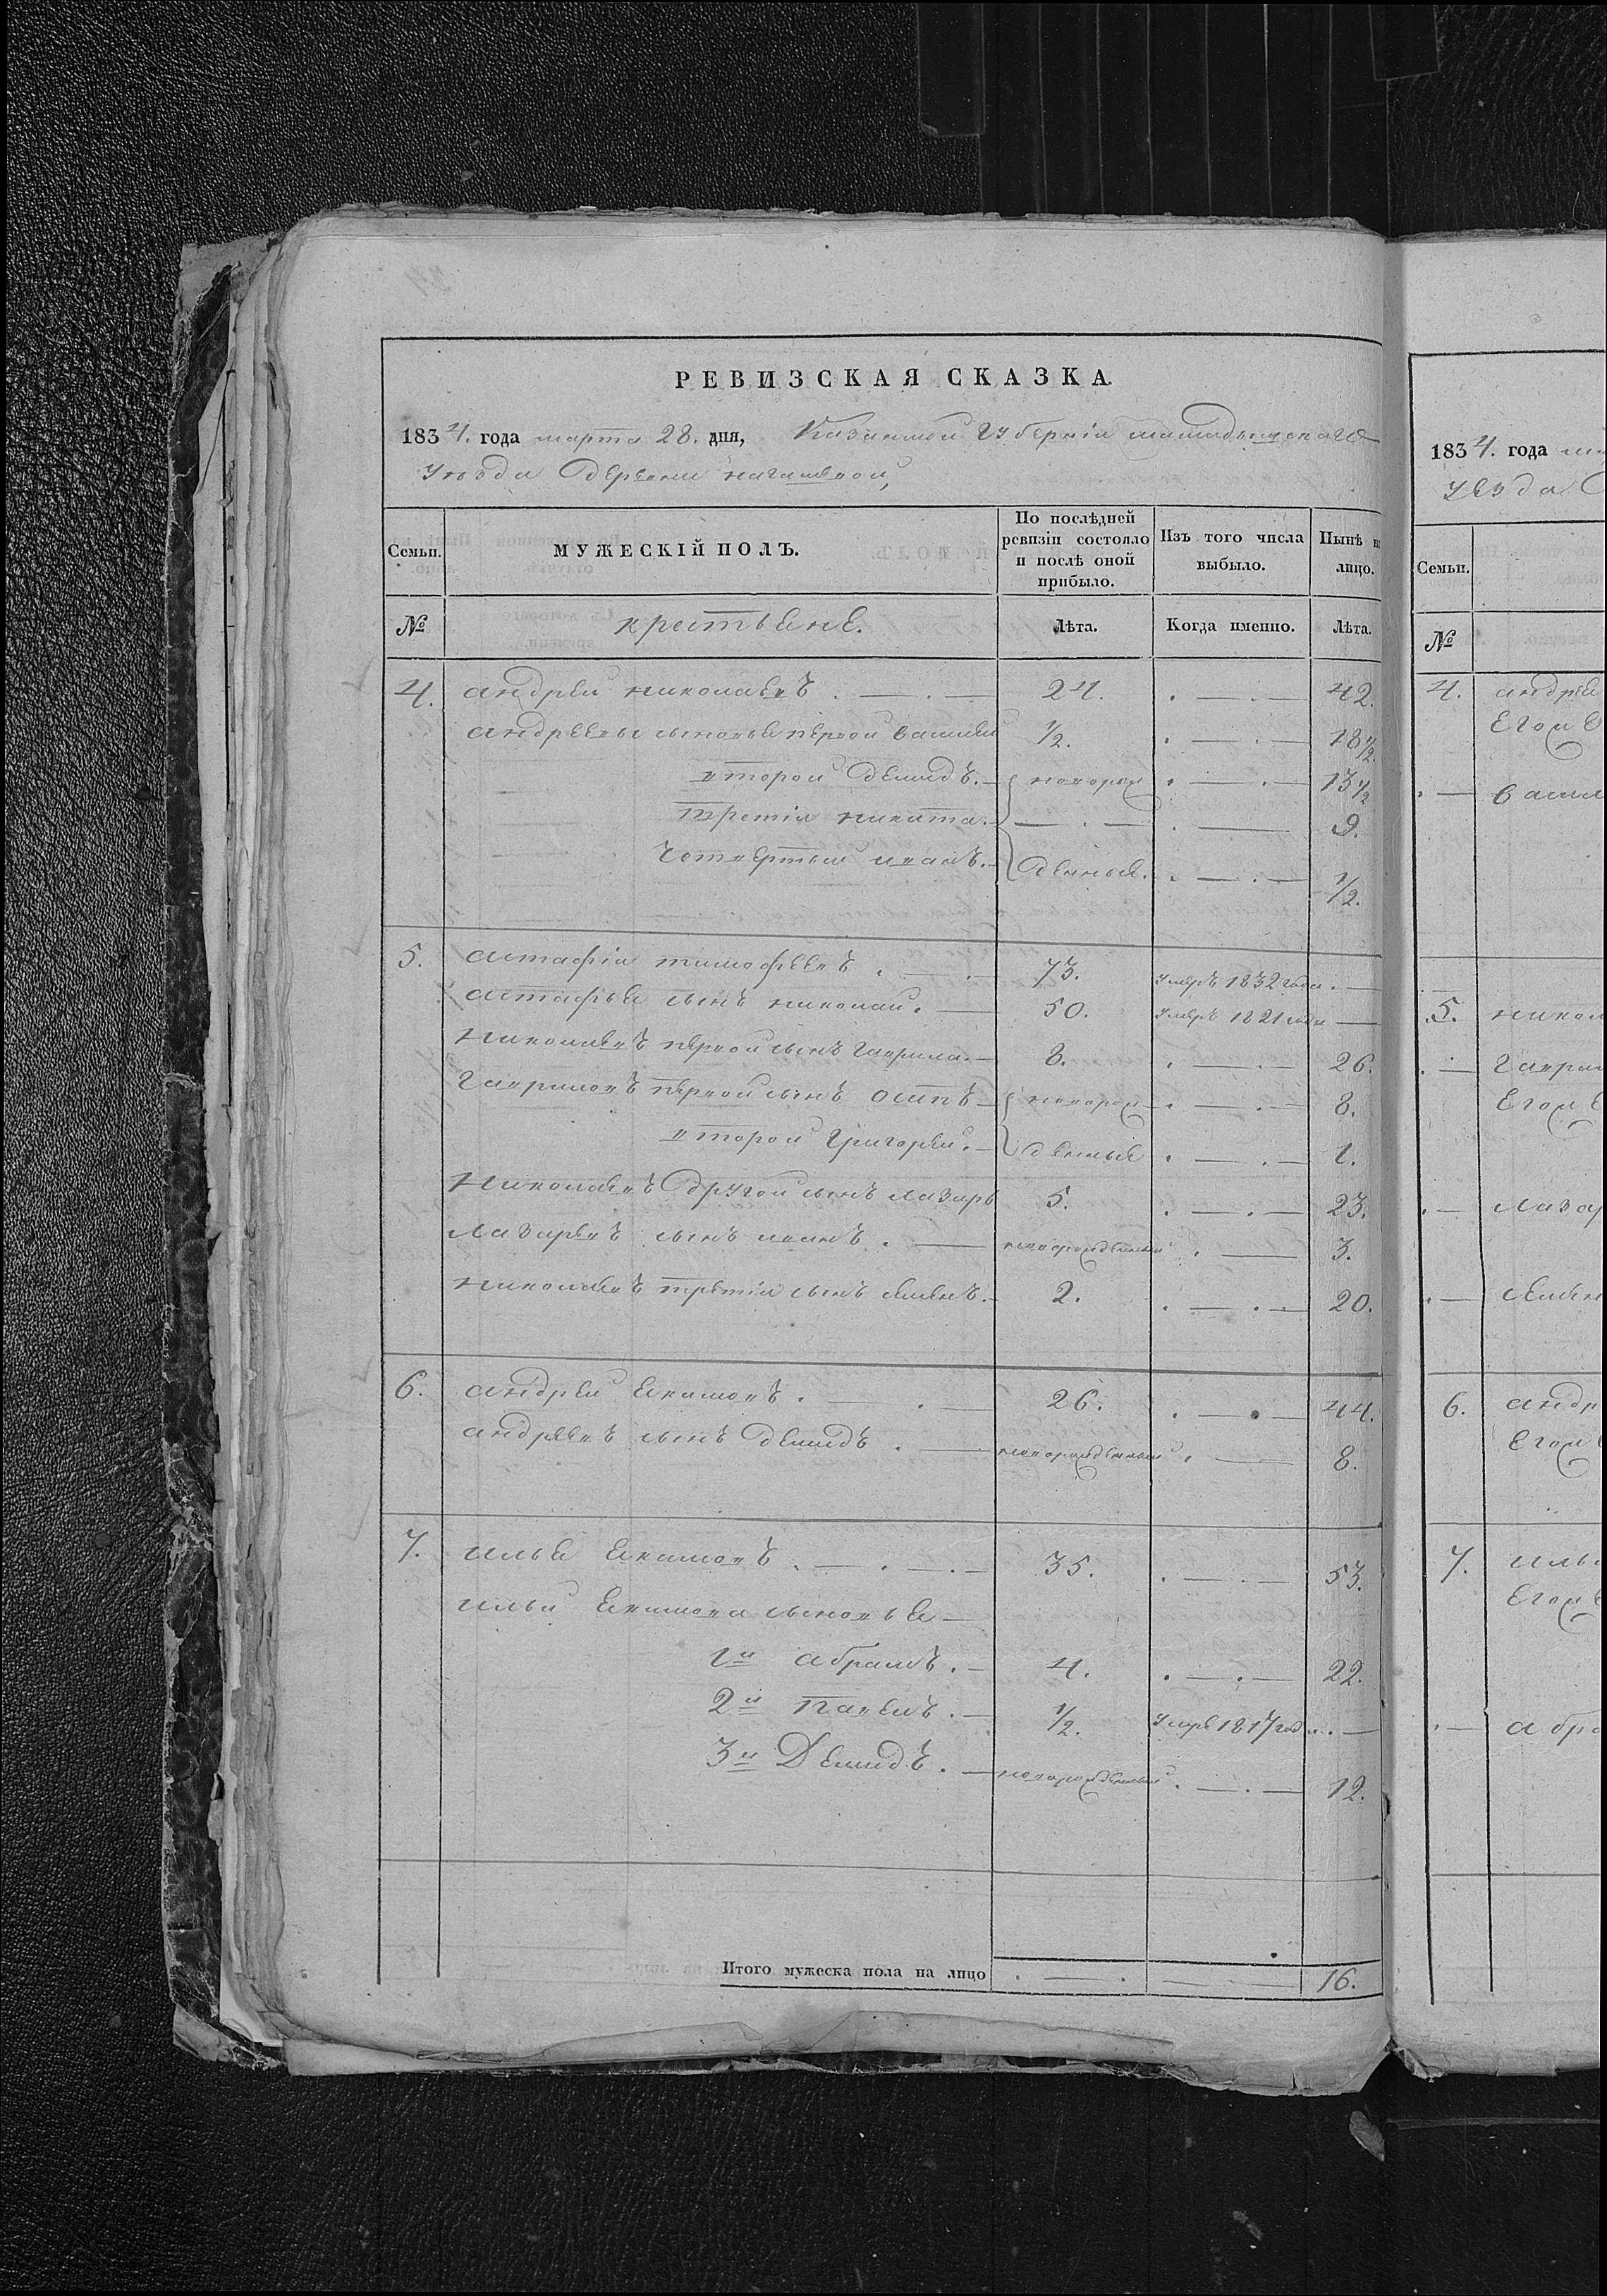 РЕВИЗСКАЯ СКАЗКА.
1834. года марта 28. дня, Казанской Губерніи мамадышскаго
Уѣзда Деревни
Семьи. МУЖЕСКІЙ ПОЛЪ. По послѣдней ревизіи состояло и послѣ оной прибыло. Изъ того числа выбыло. Нынѣ на лицо.
№ крестьяне. Лѣта. Когда именно. Лѣта.
4. андрей николаевъ . — . — 24. . — . — 42.
андреевы сыновья первой василей 1/2. . — . — 18 1/2.
второй демидъ. — новорож . — . — 13 1/2
третій никита. — — . — . — 9.
четвертый иванъ. — денныя. . — . — 1/2.
5. астафій тимофеевъ . — . — 73. умеръ 1832 года. —
астафья сынъ николай. — 50. умеръ 1821 года —
николаевъ первой сынъ гаврила. — 8. . — . — 26.
гавриловъ первой сынъ осипъ — новорож . — . — 8.
второй григорей. — денныя . — . — 1.
николаевъ другой сынъ лазарь 5. . — . — 23.
лазаревъ сынъ иванъ . — новорожденный . — 3.
николаевъ третій сынъ семенъ. — 2. . — . — 20.
6. андрей екимовъ . — . — 26. . — . — 44.
андреевъ сынъ демидъ . — новорожденный . — 8.
7. илья екимовъ . — . — . — 35. . — . — 53.
ильи екимова сыновья —
1й абрамъ . — 4. . — . — 22.
2й павелъ . — 1/2. умре 1817 года. —
3й Демидъ . — новорожденный . — . — 12.
Итого мужеска пола на лицо . — . — 16.
1834. года
уезда
Семьи.
№
4. андрее
Егоже
. — васил
5. никол
. — гаври
Егоже
. — лазар
. — семен
6. андр
Егоже
7. иль
Егоже
. — абра